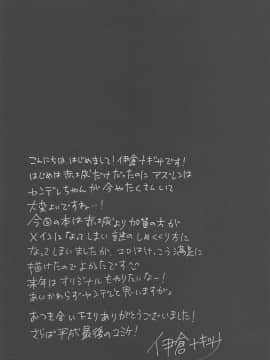 こんにちは、はじめまして!伊倉ナギサです!
はじめは赤城だけだったのにアズレンは
ヤンデレちゃんが今やたくさんいて
大変よいですね…!
今回の本は赤城より加賀の方が
メインになってしまい謎のしめくくり方に
なってしまいましたが、エロはけっこう満足に
描けたのでよかったです
来年はオリジナルもやりたいなー!
あいかわらずヤンデレと思いますが。
おつき合い下さりありがとうございました!
さらば平成最後のコミケ!
伊倉ナギサ